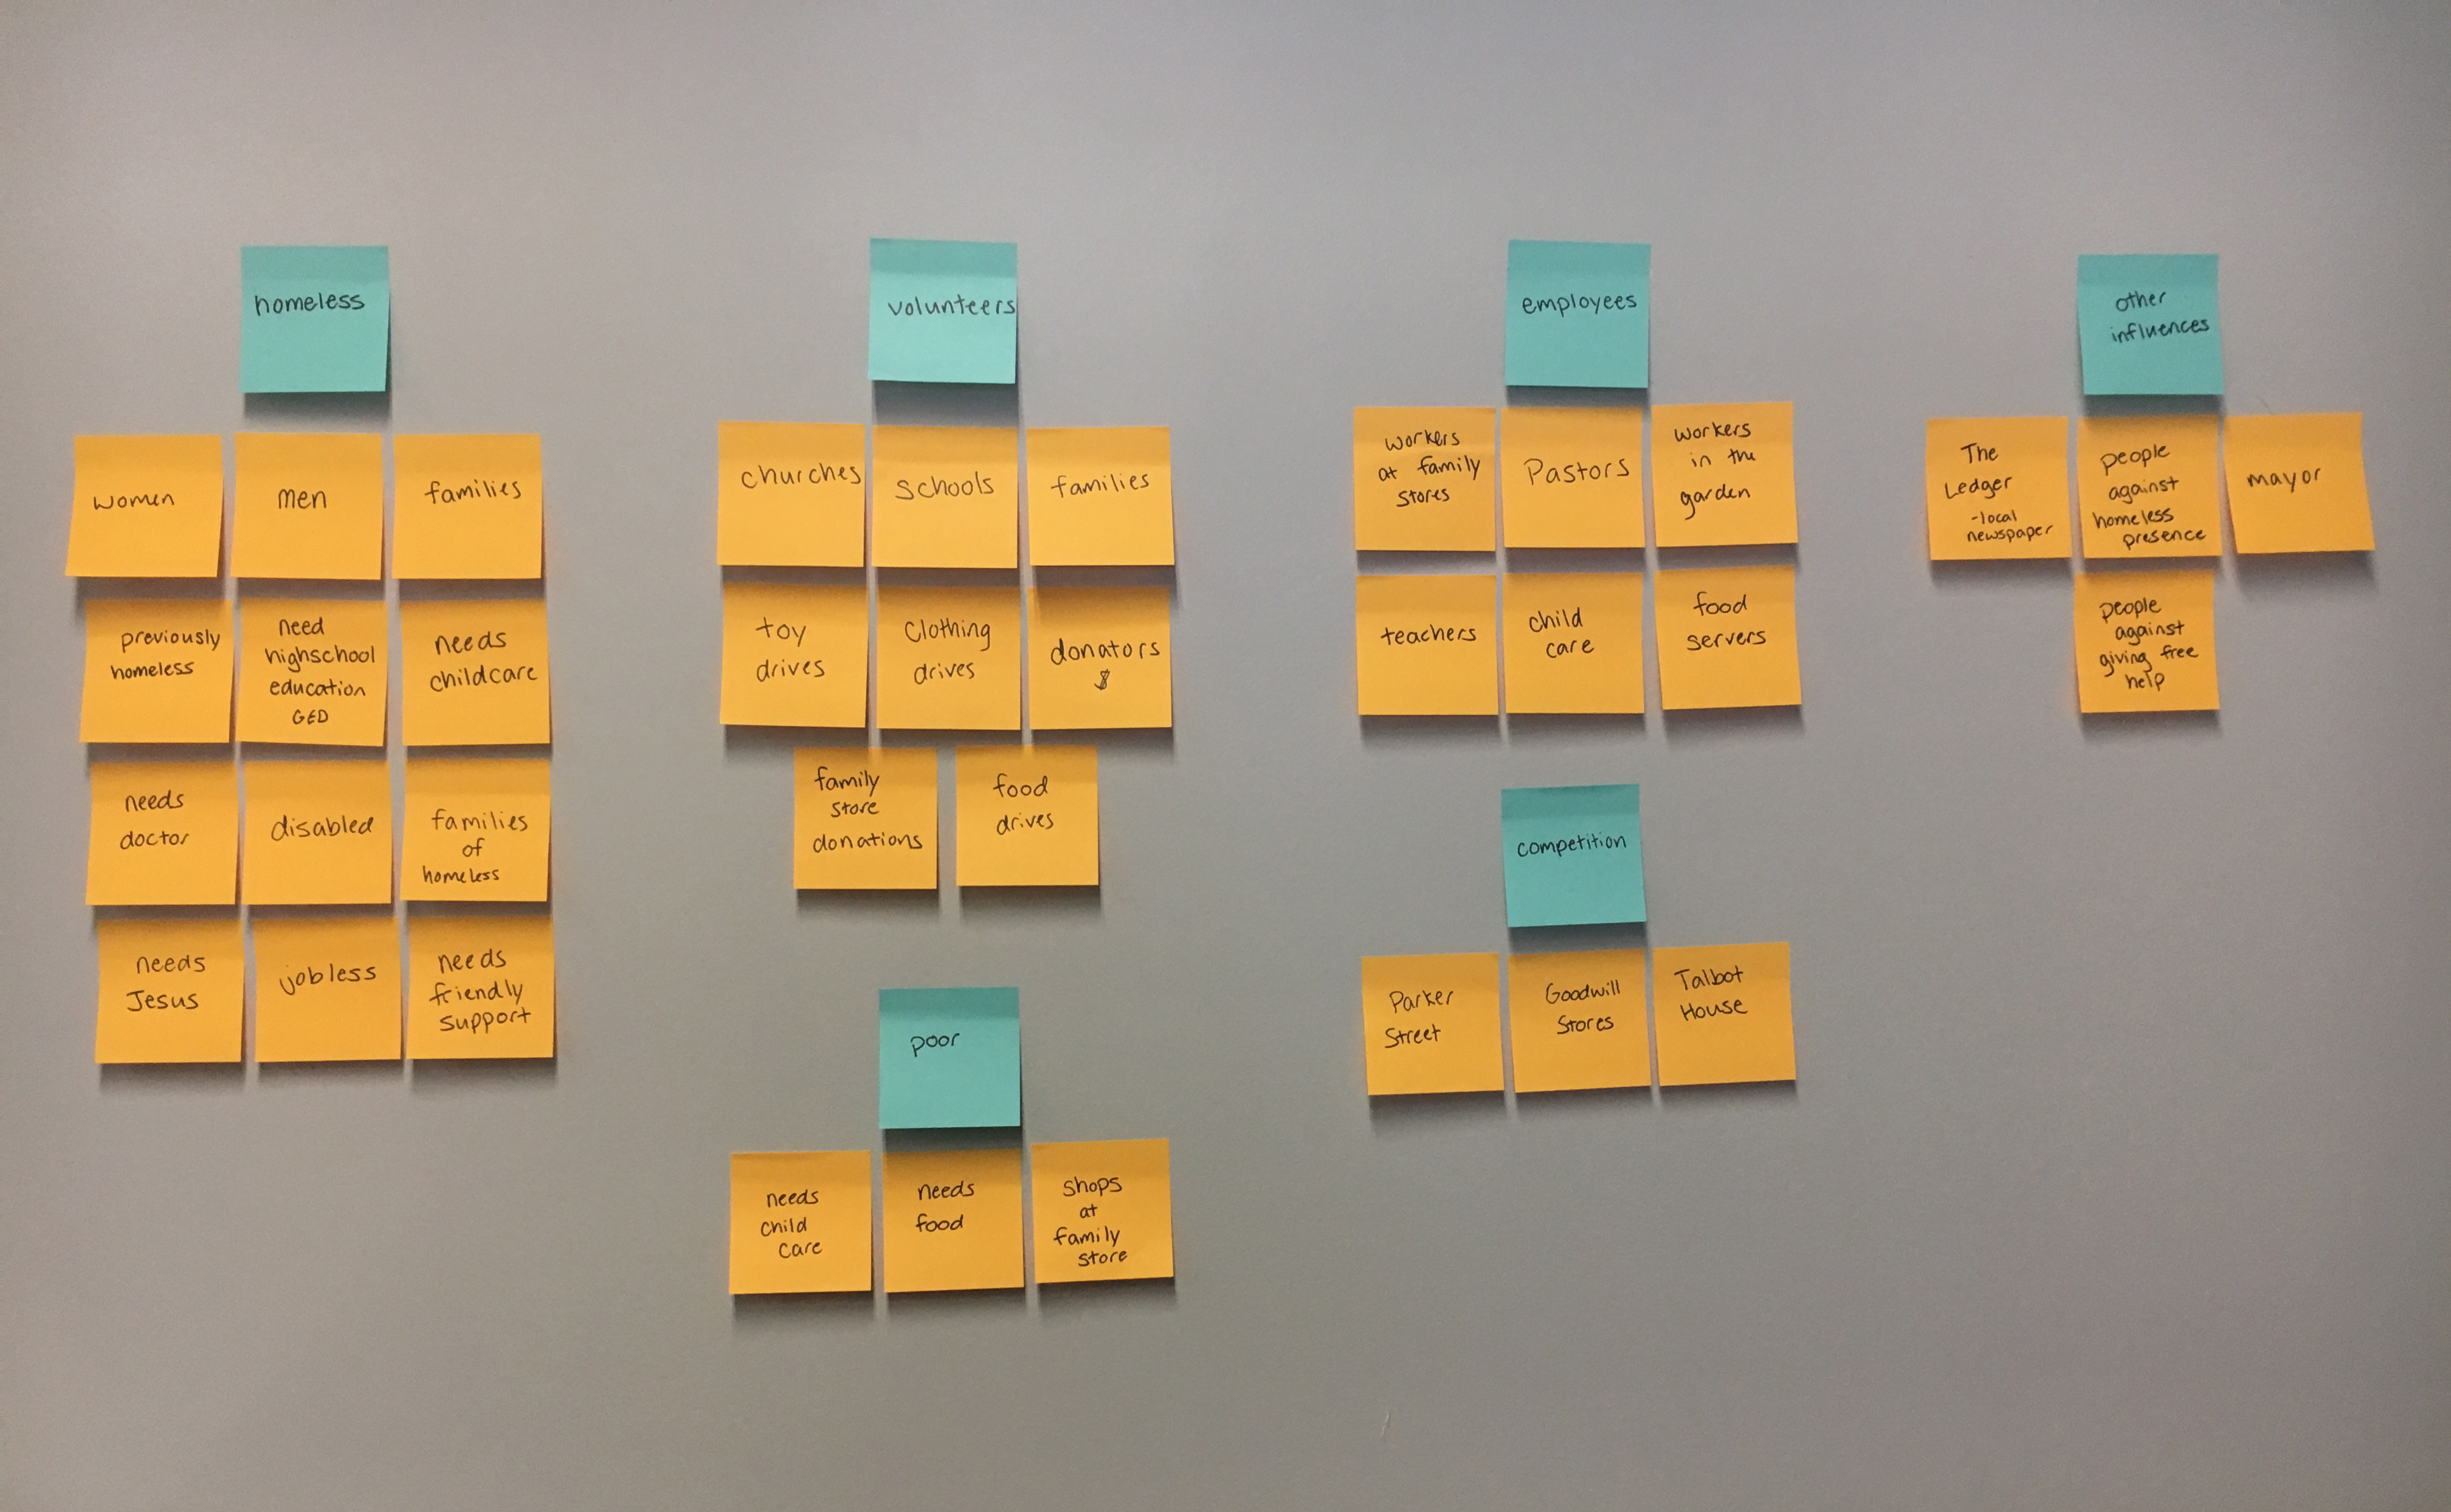 homeless
women
men
families
previously
homeless
need
highschool
education
GED
needs
childcare
needs
doctor
disabled
families
of
homeless
needs
Jesus
jobless
needs
friendly
support
volunteers
churches
schools
families
toy
drives
Clothing
drives
donators
$
family
store
donations
food
drives
poor
needs
child
care
needs
food
shops
at
family
store
employees
workers
at family
stores
Pastors
workers
in the
garden
teachers
child
care
food
servers
competition
Parker
Street
Goodwill
Stores
Talbot
House
other
influences
The
Ledger
-local
newspaper
people
against
homeless
presence
mayor
people
against
giving free
help